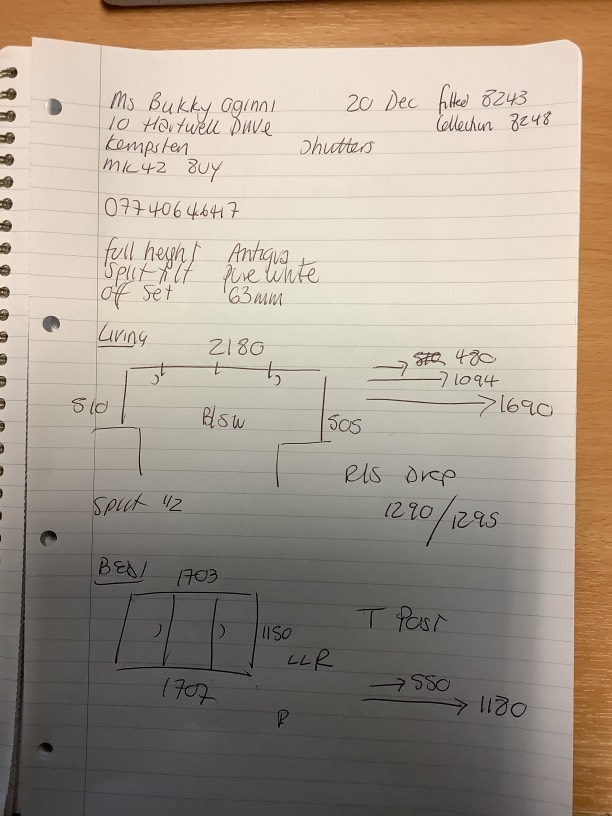 Ms Bukky Oginni 20 Dec fitted 8243
10 Hartwell Drive Collection 8248
Kempsten Shutters
MK42 8UY
07740646417
full height Antigua
Split tilt pure white
off set 63mm
Living
2180
510 480
1094
1690
B/SW
505
R/S Drop
1290/1295
Split 1/2
BED1
1703
1150
T Post
LLR
550
1707
1180
R